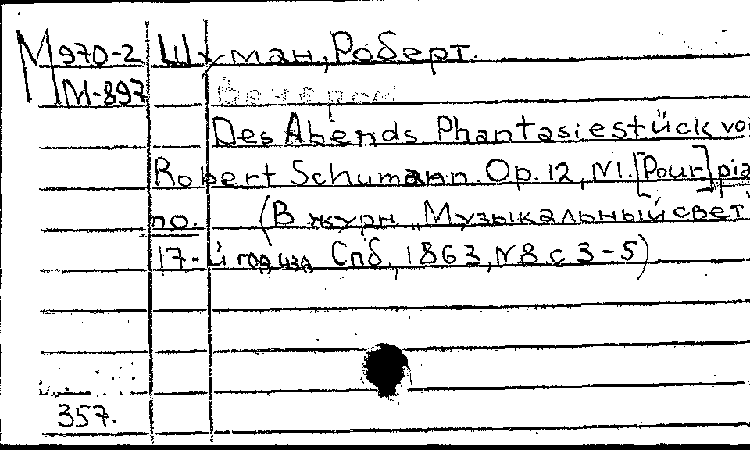 М970-2 Шуман, Роберт.
М-897 Вечером
Des Abends Phantasiestück vo
Robert Schumann. Op. 12, N1. [Pour] pia
no. (В журн „Музыкальный свет
17-й год изд Спб., 1863, N8 с 3-5)
357.